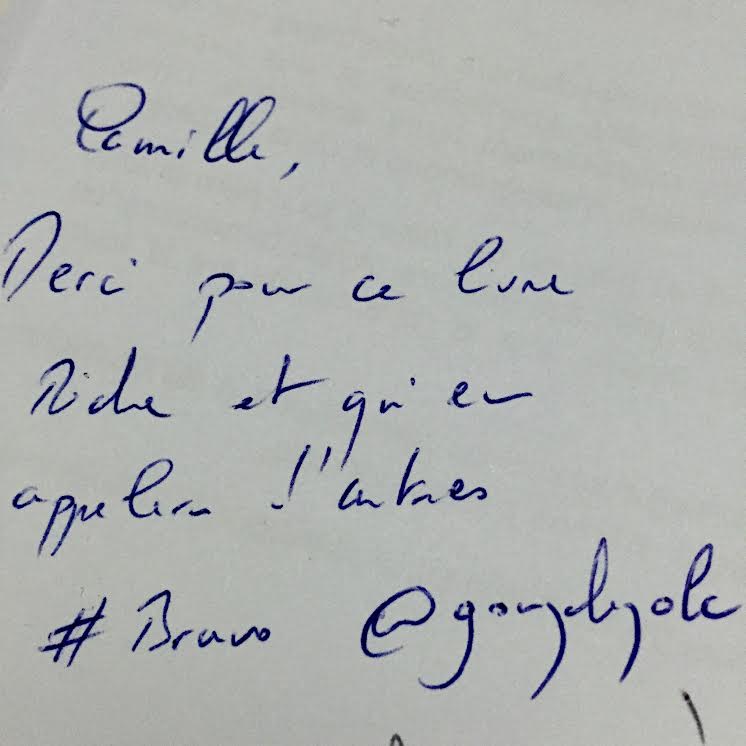 Camille,
Merci pour ce livre
Riche et qui en
appelera d'autres
#Bravo